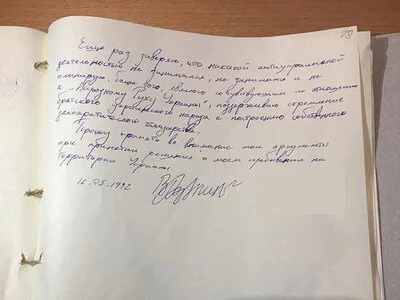 Еще раз заверяю, что никакой антиукраинской
деятельностью не занимался, не занимаюсь и не
планирую. Более того, являюсь сочувствующим по отношению
к "Народному Руху Украины", поддерживаю стремление
братского украинского народа к построению собственного
демократического государства.
Прошу принять во внимание мои аргументы
при принятии решения о моем пребывании на
территории Украины.
16.05.1992